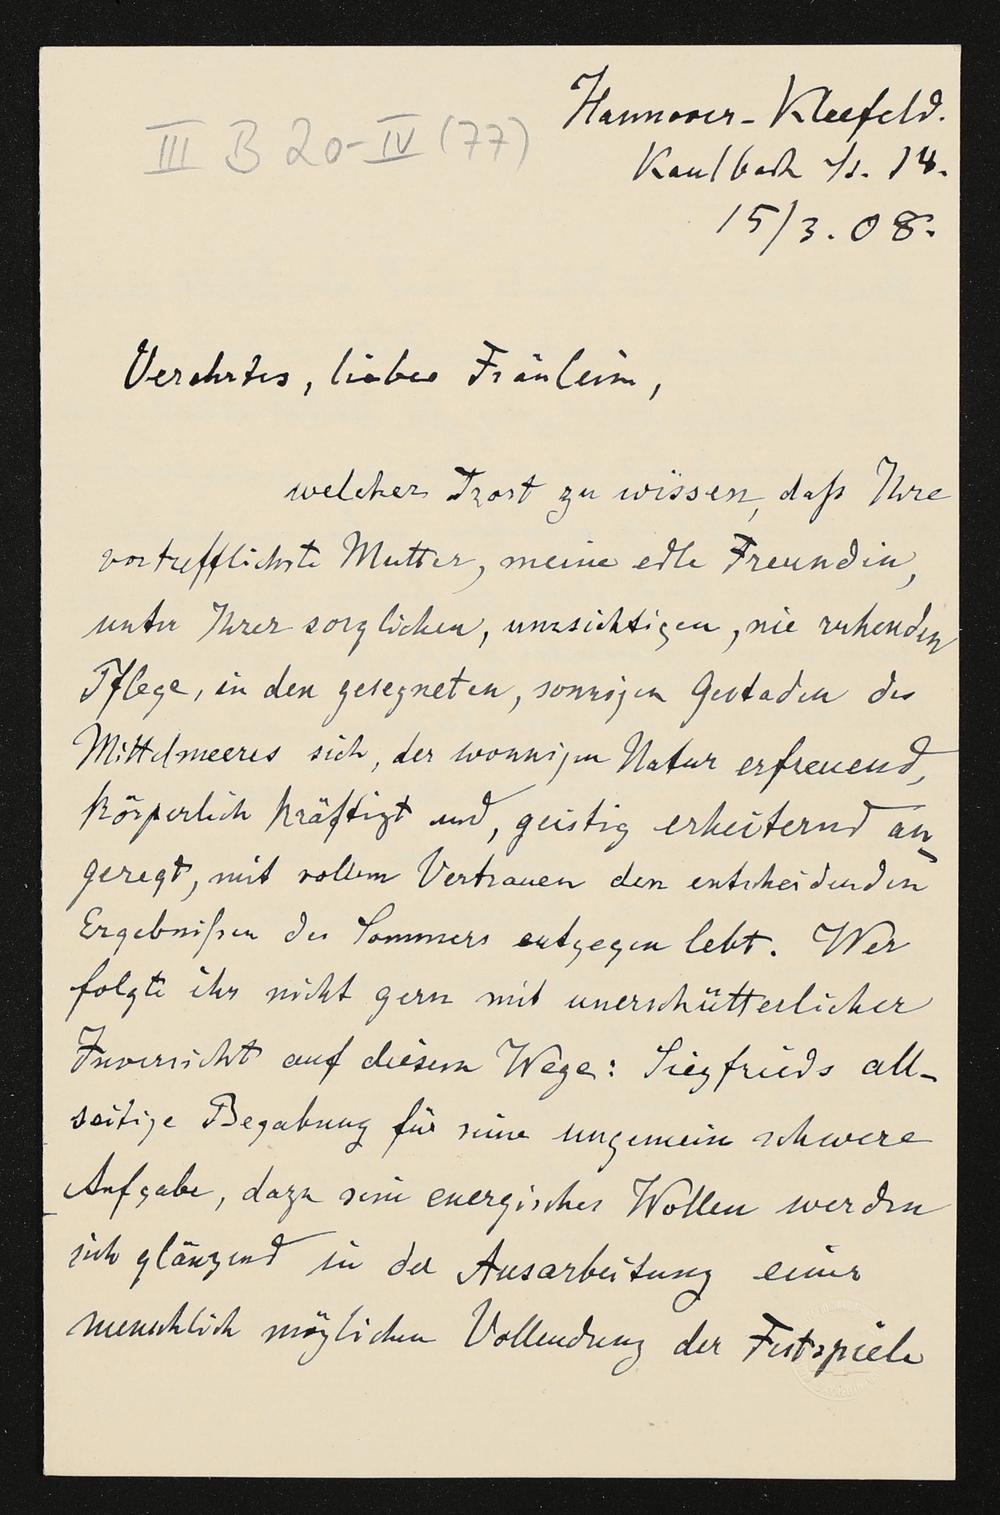 III B 20-IV (77)
Hannover-Kleefeld.
Kaulbach ./s. 14.
15/3. 08.
Verehrtes, liebes Fräulein,
welcher Trost zu wissen, daß Ihre
vortrefflichste Mutter, meine edle Freundin,
unter Ihrer sorglichen, umsichtigen, nie ruhenden
Pflege, in den gesegneten, sonnigen Gestaden des
Mittelmeeres sich, der wonnigen Natur erfreuend,
körperlich kräftigt und, geistig erheiternd an-
geregt, mit vollem Vertrauen den entscheidenden
Ergebnißen des Sommers entgegen lebt. Wer
folgte ihr nicht gern mit unerschütterlicher
Zuversicht auf diesem Wege: Siegfrieds all-
seitige Begabung für seine ungemein schwere
Aufgabe, dazu sein energisches Wollen werden
sich glänzend in der Ausarbeitung einer
menschlich möglichen Vollendung der Festspiele